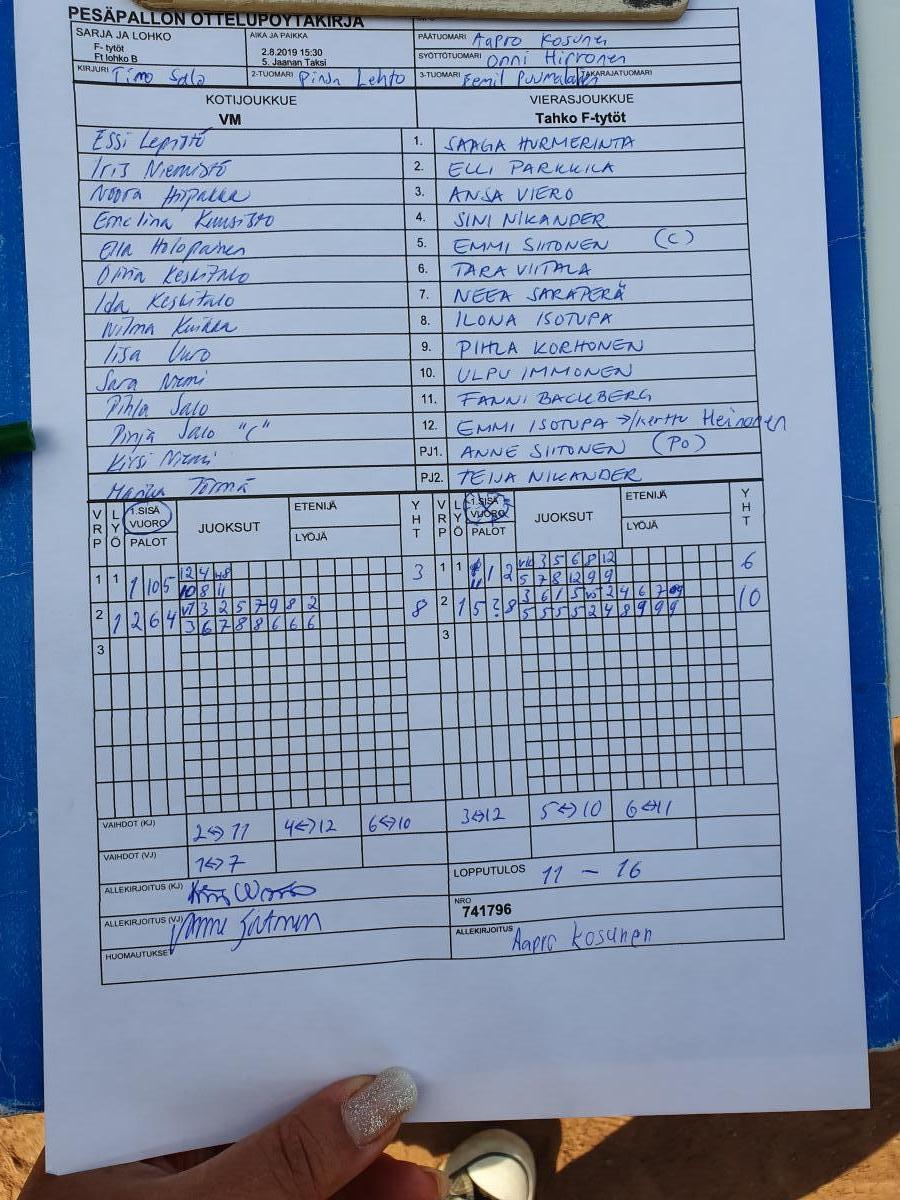 PESÄPALLON OTTELUPÖYTÄKIRJA
SARJA JA LOHKO
F- tytöt
Ft lohko B
AIKA JA PAIKKA
2.8.2019 15:30
5. Jaanan Taksi
PÄÄTUOMARI Aapro Kosunen
SYÖTTÖTUOMARI Onni Hirvonen
KIRJURI Timo Salo
2-TUOMARI Pinja Lehto
3-TUOMARI Eemil Puumalainen
TAKARAJATUOMARI
KOTIJOUKKUE
VM
VIERASJOUKKUE
Tahko F-tytöt
Essi Lepistö 1. SAAGA HURMERINTA
Iris Niemistö 2. ELLI PARKKILA
Noora 3. ANSA VIERO
Emeliina Kuusisto 4. SINI NIKANDER
Ella Holopainen 5. EMMI SIITONEN (C)
Olivia Keskitalo 6. TARA VIITALA
Ida Keskitalo 7. NEEA SARAPERÄ
Wilma Kuikka 8. ILONA ISOTUPA
Iisa Uuro 9. PIHLA KORHONEN
Sara Niemi 10. ULPU IMMONEN
Pihla Salo 11. FANNI BACKBERG
Pinja Salo "C" 12. EMMI ISOTUPA → /Kerttu Heinonen
Kirsi Niemi PJ1. ANNE SIITONEN (PO)
Marika Törmä PJ2. TEIJA NIKANDER
VRP LYÖ 1.SISÄ VUORO PALOT JUOKSUT ETENIJÄ LYÖJÄ YHT
VRP LYÖ 1.SISÄ VUORO PALOT JUOKSUT ETENIJÄ LYÖJÄ YHT
1 1 1 10 5 12 4 3
10 8 11
1 1 1 2 3 5 6 8 12 6
5 7 8 12 9 9
2 1 2 6 4 3 2 5 7 9 8 2 8
3 6 7 8 8 6 6 6
2 1 5 ? 8 3 6 1 5 2 4 6 7 10
5 5 5 5 2 4 8 9 9 9
3
3
VAIHDOT (KJ) 2↔11 4↔12 6↔10 3↔12 5↔10 6↔11
VAIHDOT (VJ) 1↔7
ALLEKIRJOITUS (KJ)
LOPPUTULOS 11 - 16
ALLEKIRJOITUS (VJ) Anne Siitonen
NRO
741796
HUOMAUTUKSET
ALLEKIRJOITUS Aapro Kosunen